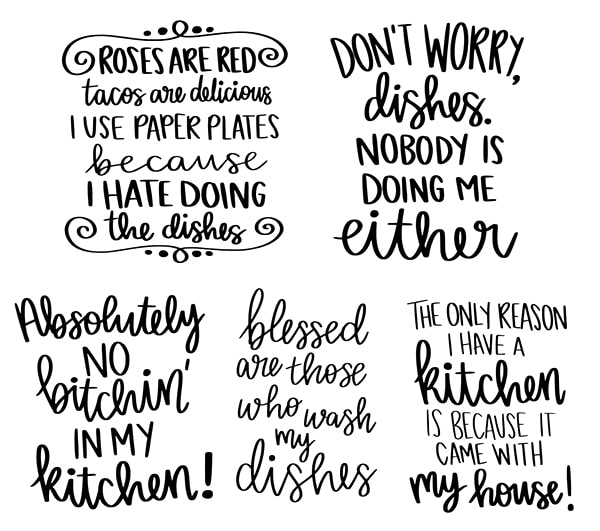 ROSES ARE RED
tacos are delicious
I USE PAPER PLATES
because
I HATE DOING
the dishes
DON'T WORRY,
dishes.
NOBODY IS
DOING ME
either
Absolutely
NO
bitchin'
IN MY
kitchen!
blessed
are those
who wash
my
dishes
THE ONLY REASON
I HAVE A
kitchen
IS BECAUSE IT
CAME WITH
my house!